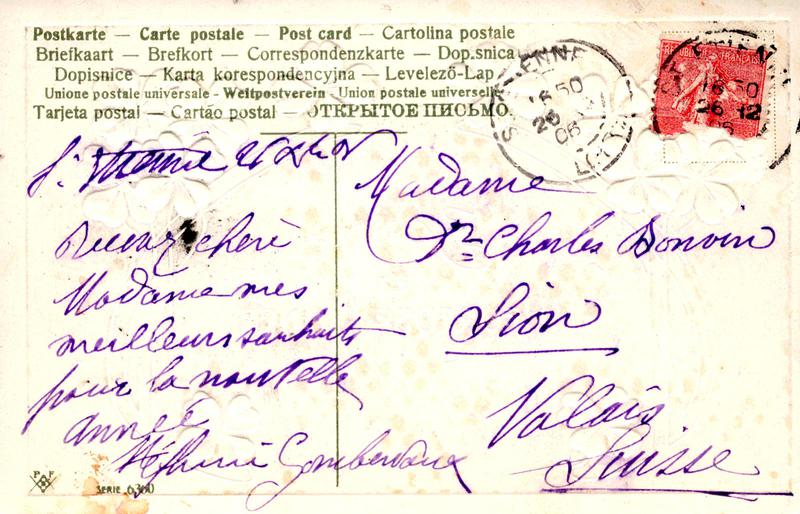 Postkarte — Carte postale — Post card — Cartolina postale
Briefkaart — Brefkort — Correspondenzkarte — Dop.snica
Dopisnice — Karta korespondencyjna — Levelező-Lap
Unione postale universale - Weltpostverein - Union postale universelle
Tarjeta postal — Cartão postal — ОТКРЫТОЕ ПИСЬМО.
REPUBLIQUE FRANÇAISE
16 50
26 12
06
16 50
26
06
LOIRE
St Etienne
Recevez chère
Madame mes
meilleurs souhaits
pour la nouvelle
année
Stéphanie
Madame
Dr Charles Bonvin
Sion
Valais
Suisse
P F
SERIE 6360